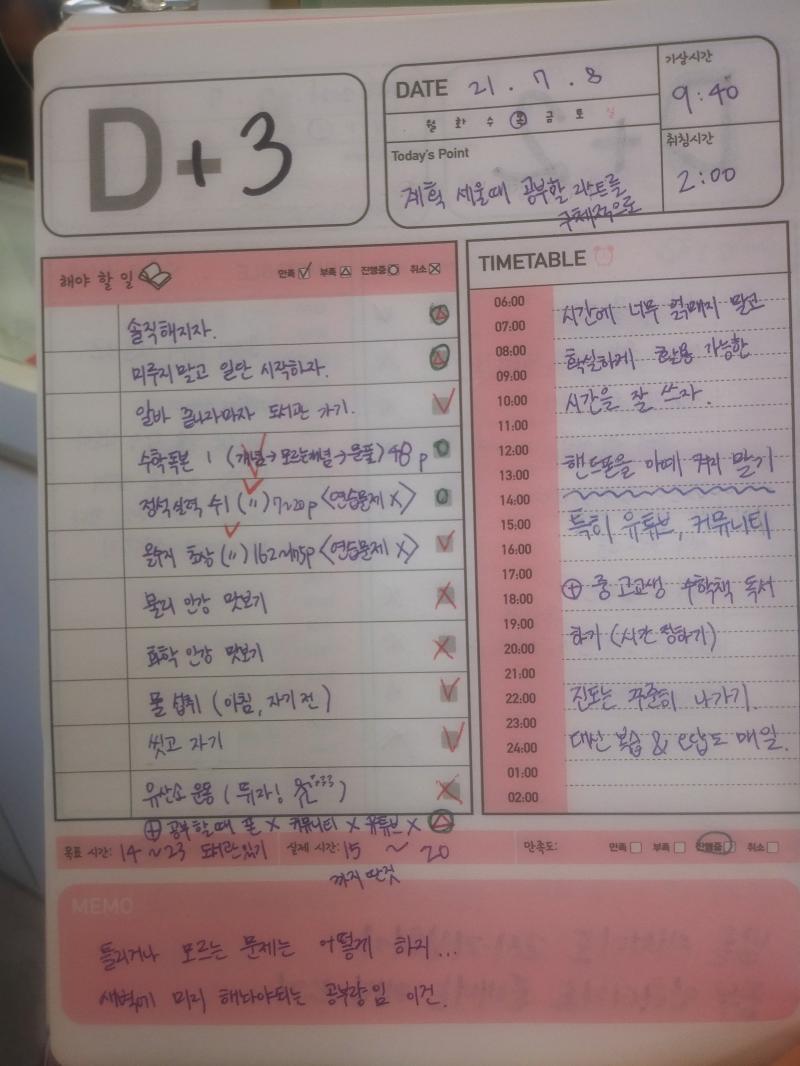 D+3
DATE 21. 7. 8
월 화 수 목 금 토 일
Today's Point
계획 세울때 공부할 리스트를
구체적으로
기상시간
9:40
취침시간
2:00
해야 할 일
만족 부족 진행중 취소
솔직해지자.
미루지 말고 일단 시작하자.
알바 끝나자마자 도서관 가기.
수학독본 1 (개념→모르는개념→문풀) 48p
정석실력 수1 (〃) 7~20p <연습문제 X>
올수지 초장 (〃) 162~175p <연습문제 X>
물리 인강 맛보기
화학 인강 맛보기
물 섭취 (아침, 자기 전)
씻고 자기
유산소 운동 (뛰자!)
⊕ 공부할때 폰 X 커뮤니티 X 유튜브 X
TIMETABLE
06:00
07:00
08:00
09:00
10:00
11:00
12:00
13:00
14:00
15:00
16:00
17:00
18:00
19:00
20:00
21:00
22:00
23:00
24:00
01:00
02:00
시간에 너무 얽매지 말고
확실하게 활용 가능한
시간을 잘 쓰자.
핸드폰을 아예 켜지 말기
특히 유튜브, 커뮤니티
⊕ 중고교생 수학책 독서
하기 (시간 정하기)
진도는 꾸준히 나가기.
대신 복습 & 오답도 매일.
목표 시간: 14 ~ 23 도서관 있기
실제 시간: 15 ~ 20
까지 딴짓
만족도: 만족 부족 진행중 취소
MEMO
틀리거나 모르는 문제는 어떻게 하지...
새벽에 미리 해놔야되는 공부량임 이건.